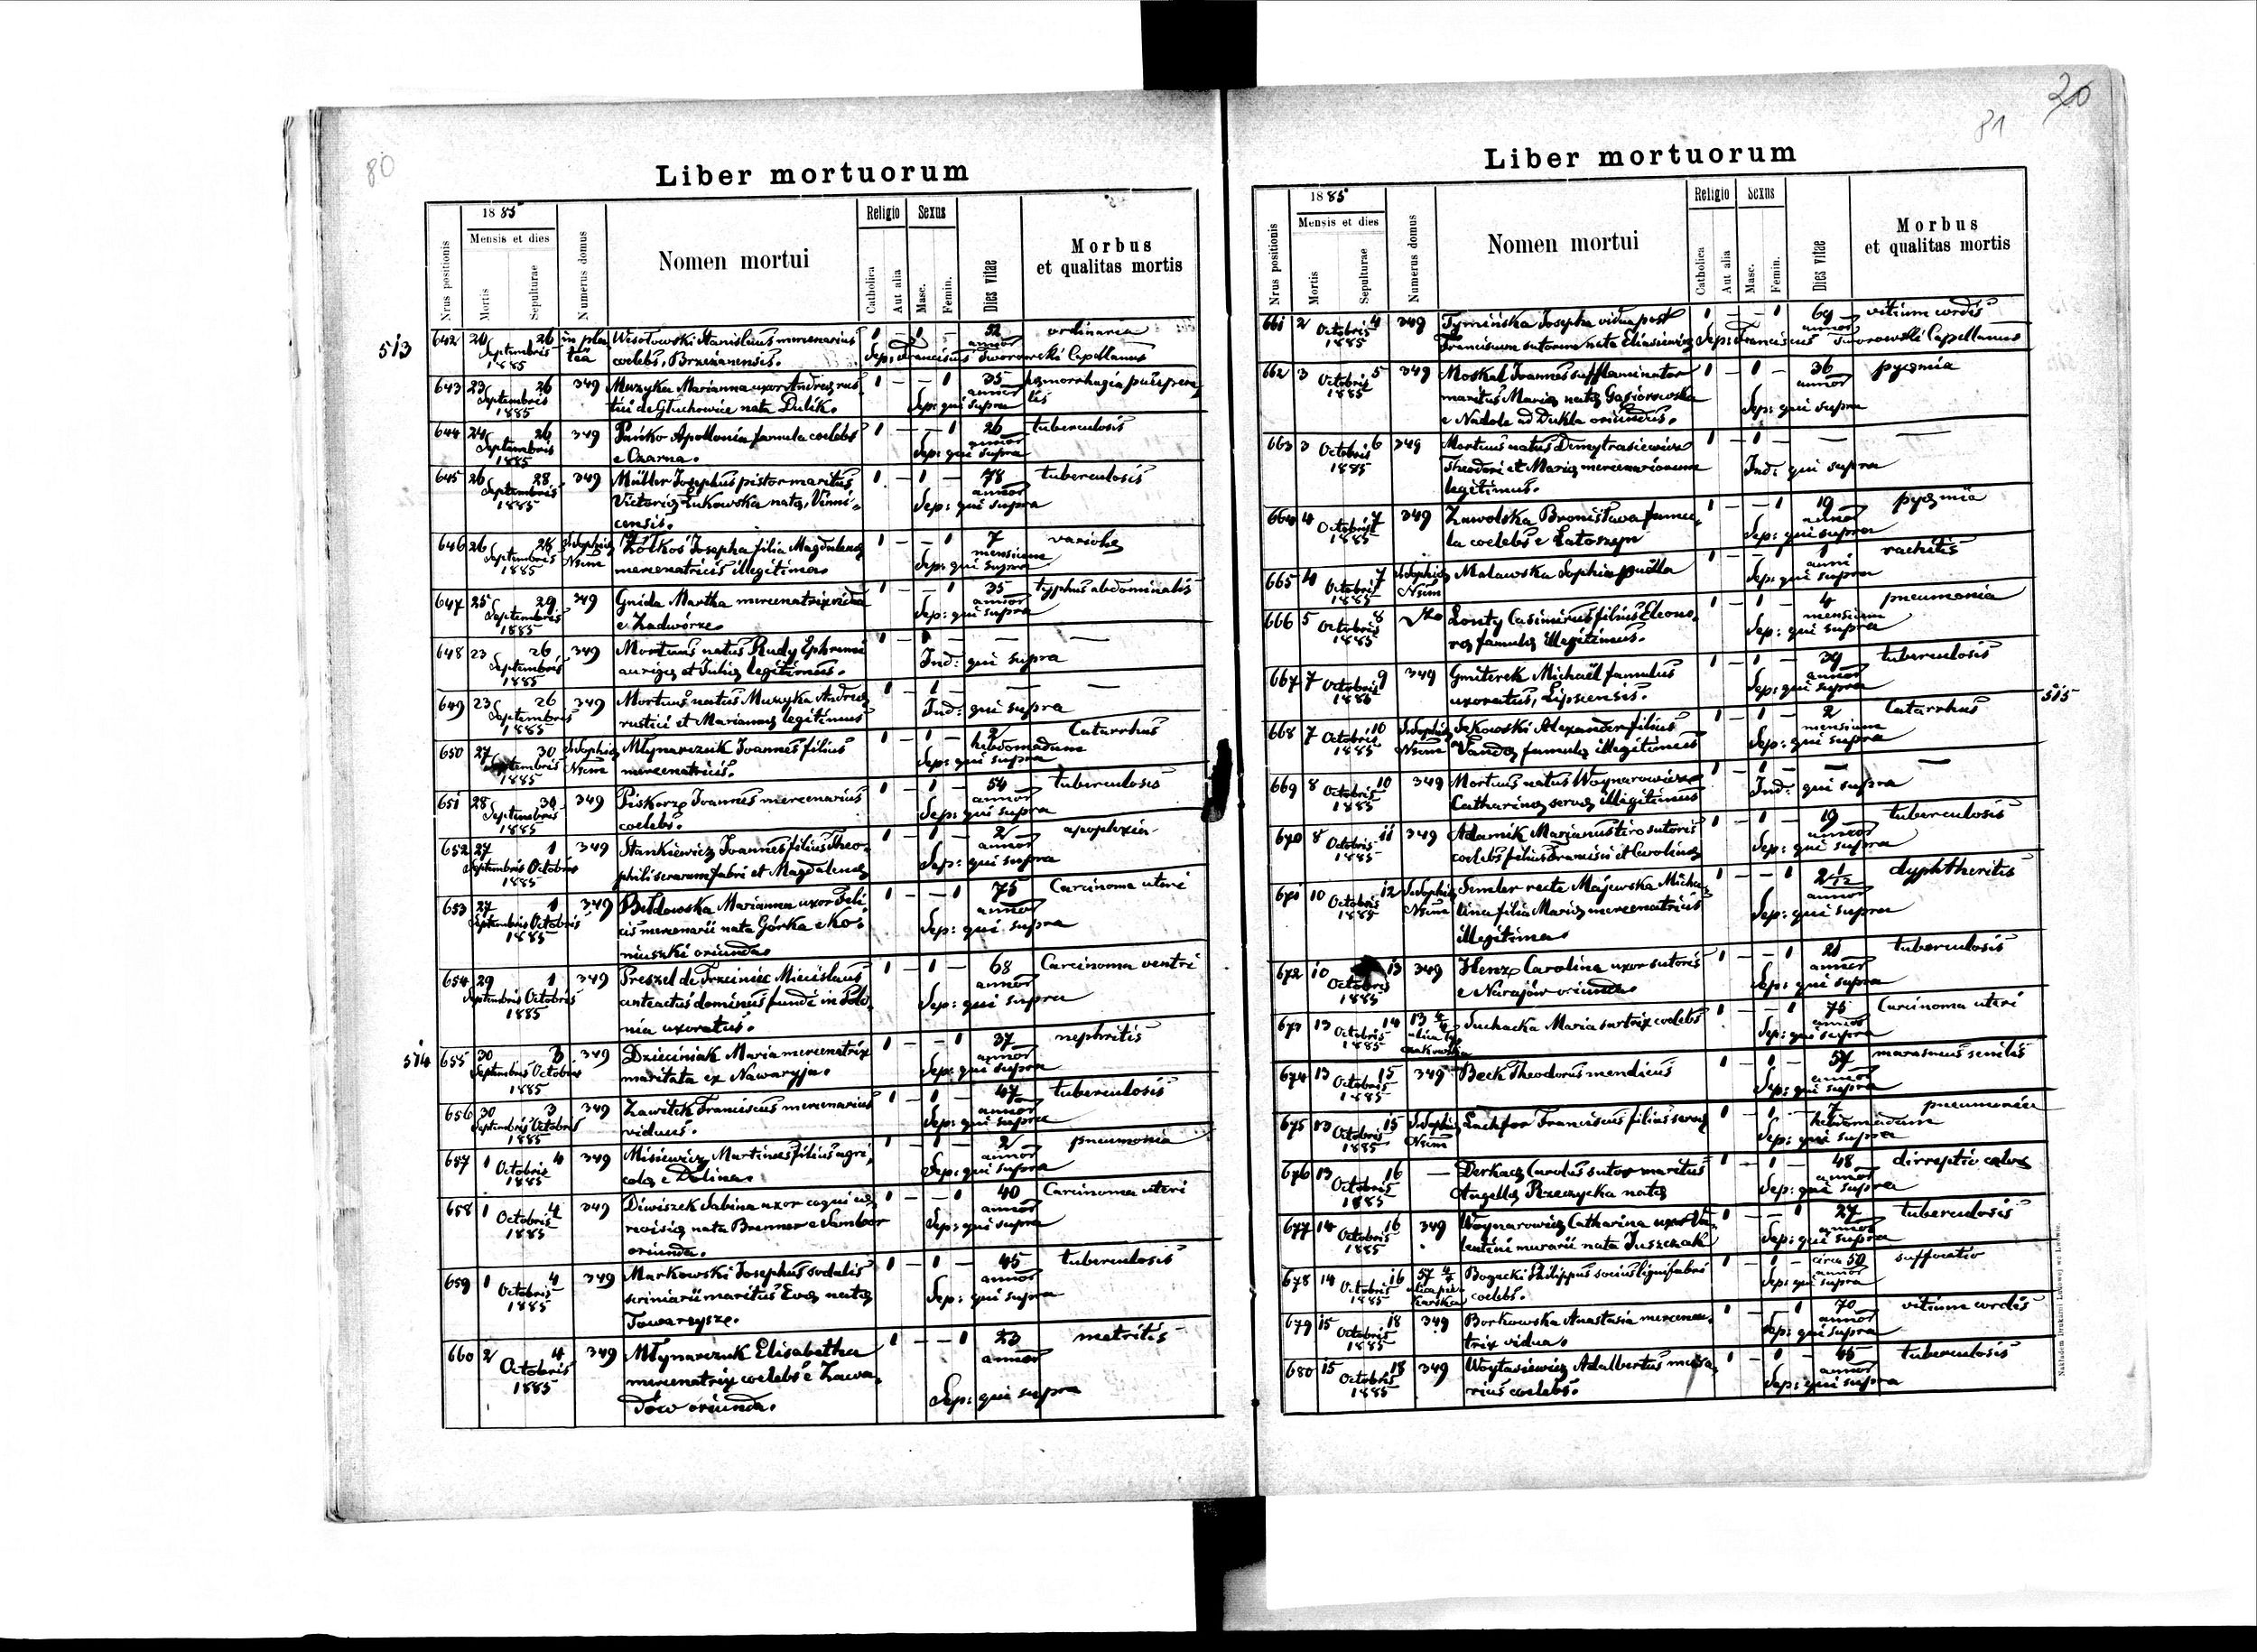 80
Liber mortuorum
Nrus positionis
1885
Mensis et dies
Mortis
Sepulturae
Numerus domus
Nomen mortui
Religio
Catholica
Aut alia
Sexus
Masc.
Femin.
Dies vitae
Morbus
et qualitas mortis
513
642 20 26 in pla Wesołowski Stanislaus mercenarius 1 – 1 – 52 ordinaria
Septembris tea coelebs, Brzezanensis. annor
1885 Sep: Franciscus Dworowski Capellanus
643 23 26 349 Muzyka Marianna uxor Andreę rus 1 – – 1 35 hęmorrhagia puerpera
Septembris tici de Głuchowice nata Dulik. annor lis
1885 Sep: qui supra
644 24 26 349 Pańko Apollonia famula coelebs 1 – – 1 26 tuberculosis
Septembris e Czarna. annor
1885 Sep: qui supra
645 26 28 349 Müller Josephus pistor maritus 1 – 1 – 78 tuberculosis
Septembris Victorię Żukowska natę, Vinni- annor
1885 censis. Sep: qui supra
646 26 28 S. Sophię Żółkoś Josepha filia Magdalenę 1 – – 1 7 variolę
Septembris Nsim mercenatricis illegitima. mensium
1885 Sep: qui supra
647 25 29 349 Gnida Martha mercenatrix vidua 1 – – 1 35 typhus abdominalis
Septembris e Zadwórze. annor
1885 Sep: qui supra
648 23 26 349 Mortuus natus Rudy Ephremi 1 – 1 – — —
Septembris aurigę et Julię legitimus. Ind: qui supra
1885
649 23 26 349 Mortuus natus Muzyka Andreę 1 – 1 – — —
Septembris rustici et Mariannę legitimus Ind: qui supra
1885
650 27 30 S. Sophię Młynarczuk Joannes filius 1 – 1 – 2 Catarrhus
Septembris Nsim mercenatricis. hebdomadum
1885 Sep: qui supra
651 28 30 349 Piskorz Joannes mercenarius 1 – 1 – 54 tuberculosis
Septembris coelebs. annor
1885 Sep: qui supra
652 27 1 349 Stankiewicz Joannes filius Theo- 1 – 1 – 2 apoplexia
Septembris Octobris phili serarum fabri et Magdalenę annor
1885 Sep: qui supra
653 27 1 349 Bełdowska Marianna uxor Feli 1 – – 1 75 Carcinoma uteri
Septembris Octobris cis mercenarii nata Górka e Ko- annor
1885 niuszki oriunda. Sep: qui supra
654 29 1 349 Preszel de Trzciniec Miecislaus 1 – 1 – 68 Carcinoma ventri
Septembris Octobris anteactus dominus fundi in Polo- annor
1885 nia uxoratus. Sep: qui supra
514
655 30 3 349 Dzieciniak Maria mercenatrix 1 – – 1 37 nephritis
Septembris Octobris maritata ex Nawaryja. annor
1885 Sep: qui supra
656 30 3 349 Zawitek Franciscus mercenarius 1 – 1 – 47 tuberculosis
Septembris Octobris viduus. annor
1885 Sep: qui supra
657 1 4 349 Misiewicz Martinus filius agri- 1 – 1 – 2 pneumonia
Octobris colę e Dolina. annor
1885 Sep: qui supra
658 1 4 349 Diwiszek Sabina uxor coqui ce- 1 – – 1 40 Carcinoma uteri
Octobris revisię nata Brenner e Sambor annor
1885 oriunda. Sep: qui supra
659 1 4 349 Markowski Josephus sodalis 1 – 1 – 45 tuberculosis
Octobris scriniarii maritus Evę natę annor
1885 Towarzysze. Sep: qui supra
660 2 4 349 Młynarczuk Elisabetha 1 – – 1 23 metritis
Octobris mercenatrix coelebs e Zawa- annor
1885 dów oriunda. Sep: qui supra
20
81
Liber mortuorum
Nrus positionis
1885
Mensis et dies
Mortis
Sepulturae
Numerus domus
Nomen mortui
Religio
Catholica
Aut alia
Sexus
Masc.
Femin.
Dies vitae
Morbus
et qualitas mortis
661 2 4 349 Tymińska Josepha vidua post 1 – – 1 69 vitium cordis
Octobris Franciscum sutorem nata Eliasiewicz annor
1885 Sep: Franciscus Dworowski Capellanus
662 3 5 349 Moskal Joannes sufflaminator 1 – 1 – 36 pyęmia
Octobris maritus Marię natę Gąsiorowska annor
1885 e Nadole ad Dukla oriundus. Sep: qui supra
663 3 6 349 Mortuus natus Demytrasiewicz 1 – 1 – — —
Octobris Theodori et Marię mercenariorum
1885 legitimus. Ind: qui supra
664 4 7 349 Zawolska Bronisława famu- 1 – – 1 19 pyęmia
Octobris la coelebs e Latoszyn annor
1885 Sep: qui supra
665 4 7 S. Sophię Malawska Sophia puella 1 – – 1 1 rachitis
Octobris Nsim anni
1885 Sep: qui supra
666 5 8 Lonty Casimirus filius Eleono- 1 – 1 – 4 pneumonia
Octobris rę famulę illegitimus. mensium
1885 Sep: qui supra
667 7 9 349 Gmiterek Michaël famulus 1 – 1 – 39 tuberculosis
Octobris uxoratus, Lipsiensis. annor
1885 Sep: qui supra
515
668 7 10 S. Sophię Sekowski Alexander filius 1 – 1 – 2 Catarrhus
Octobris Nsim Vandę famulę illegitimus mensium
1885 Sep: qui supra
669 8 10 349 Mortuus natus Woynarowicz 1 – 1 – — —
Octobris Catharinę servę illegitimus
1885 Ind: qui supra
670 8 11 349 Adamik Marjanus tiro sutoris 1 – 1 – 19 tuberculosis
Octobris coelebs filius Francisci et Carolinę annor
1885 Sep: qui supra
671 10 12 S. Sophię Semler recte Majewska Micha- 1 – – 1 2 1/12 dyphtheritis
Octobris Nsim lina filia Marię mercenatricis annor
1885 illegitima. Sep: qui supra
672 10 13 349 Henz Carolina uxor sutoris 1 – – 1 21 tuberculosis
Octobris e Narajów oriunda. annor
1885 Sep: qui supra
673 13 14 13 4/4 Suchacka Maria sartrix coelebs 1 – – 1 75 Carcinoma uteri
Octobris ulica Ły- annor
1885 czakowska Sep: qui supra
674 13 15 349 Beck Theodorus mendicus 1 – 1 – 57 marasmus senilis
Octobris annor
1885 Sep: qui supra
675 13 15 S. Sophię Lachfor Franciscus filius servę 1 – 1 – 7 pneumonia
Octobris Nsim hebdomadum
1885 Sep: qui supra
676 13 16 — Derkacz Carolus sutor maritus 1 – 1 – 48 dirreptio calvę
Octobris Angelę Rzeczycka natę annor
1885 Sep: qui supra
677 14 16 349 Woynarowicz Catharina uxor Va- 1 – – 1 27 tuberculosis
Octobris lentini murarii nata Juszczak annor
1885 Sep: qui supra
678 14 16 57 4/4 Bogucki Philippus socius lignifabri 1 – 1 – circa 50 suffocatio
Octobris ulica pie- coelebs. annor
1885 karska Sep: qui supra
679 15 18 349 Borkowska Anastasia mercena- 1 – – 1 70 vitium cordis
Octobris trix vidua. annor
1885 Sep: qui supra
680 15 18 349 Woytasiewicz Adalbertus merce- 1 – 1 – 45 tuberculosis
Octobris rius coelebs. annor
1885 Sep: qui supra
Nakładem Drukarni Ludowej we Lwowie.